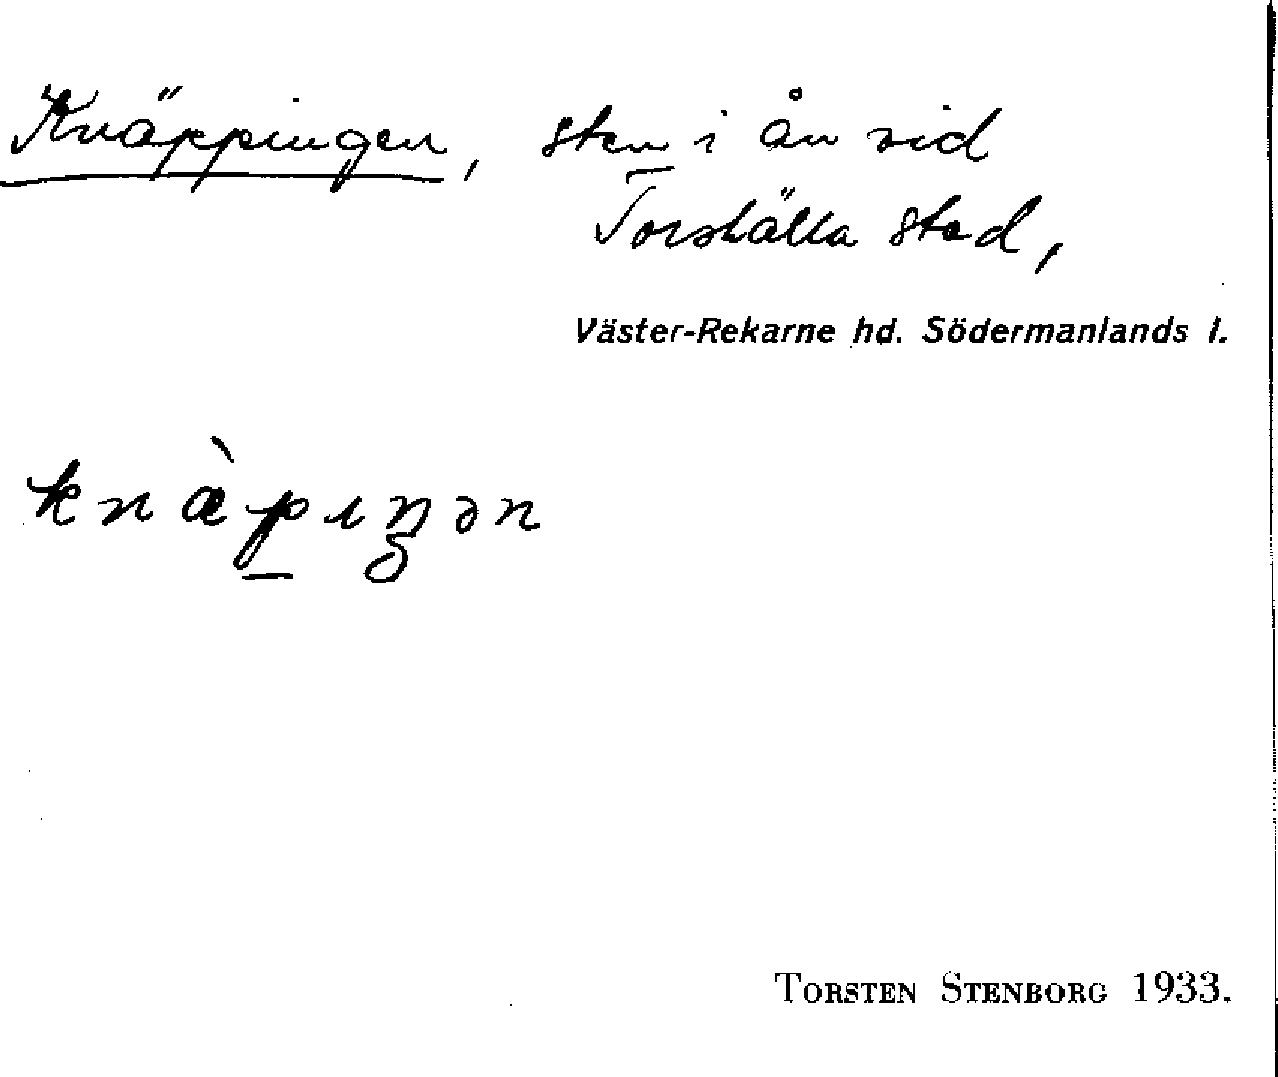 Knäppingen, sten i ån vid
Torshälla stad,
Väster-Rekarne hd. Södermanlands l.
knæ̀p̠ıŋən
TORSTEN STENBORG 1933.